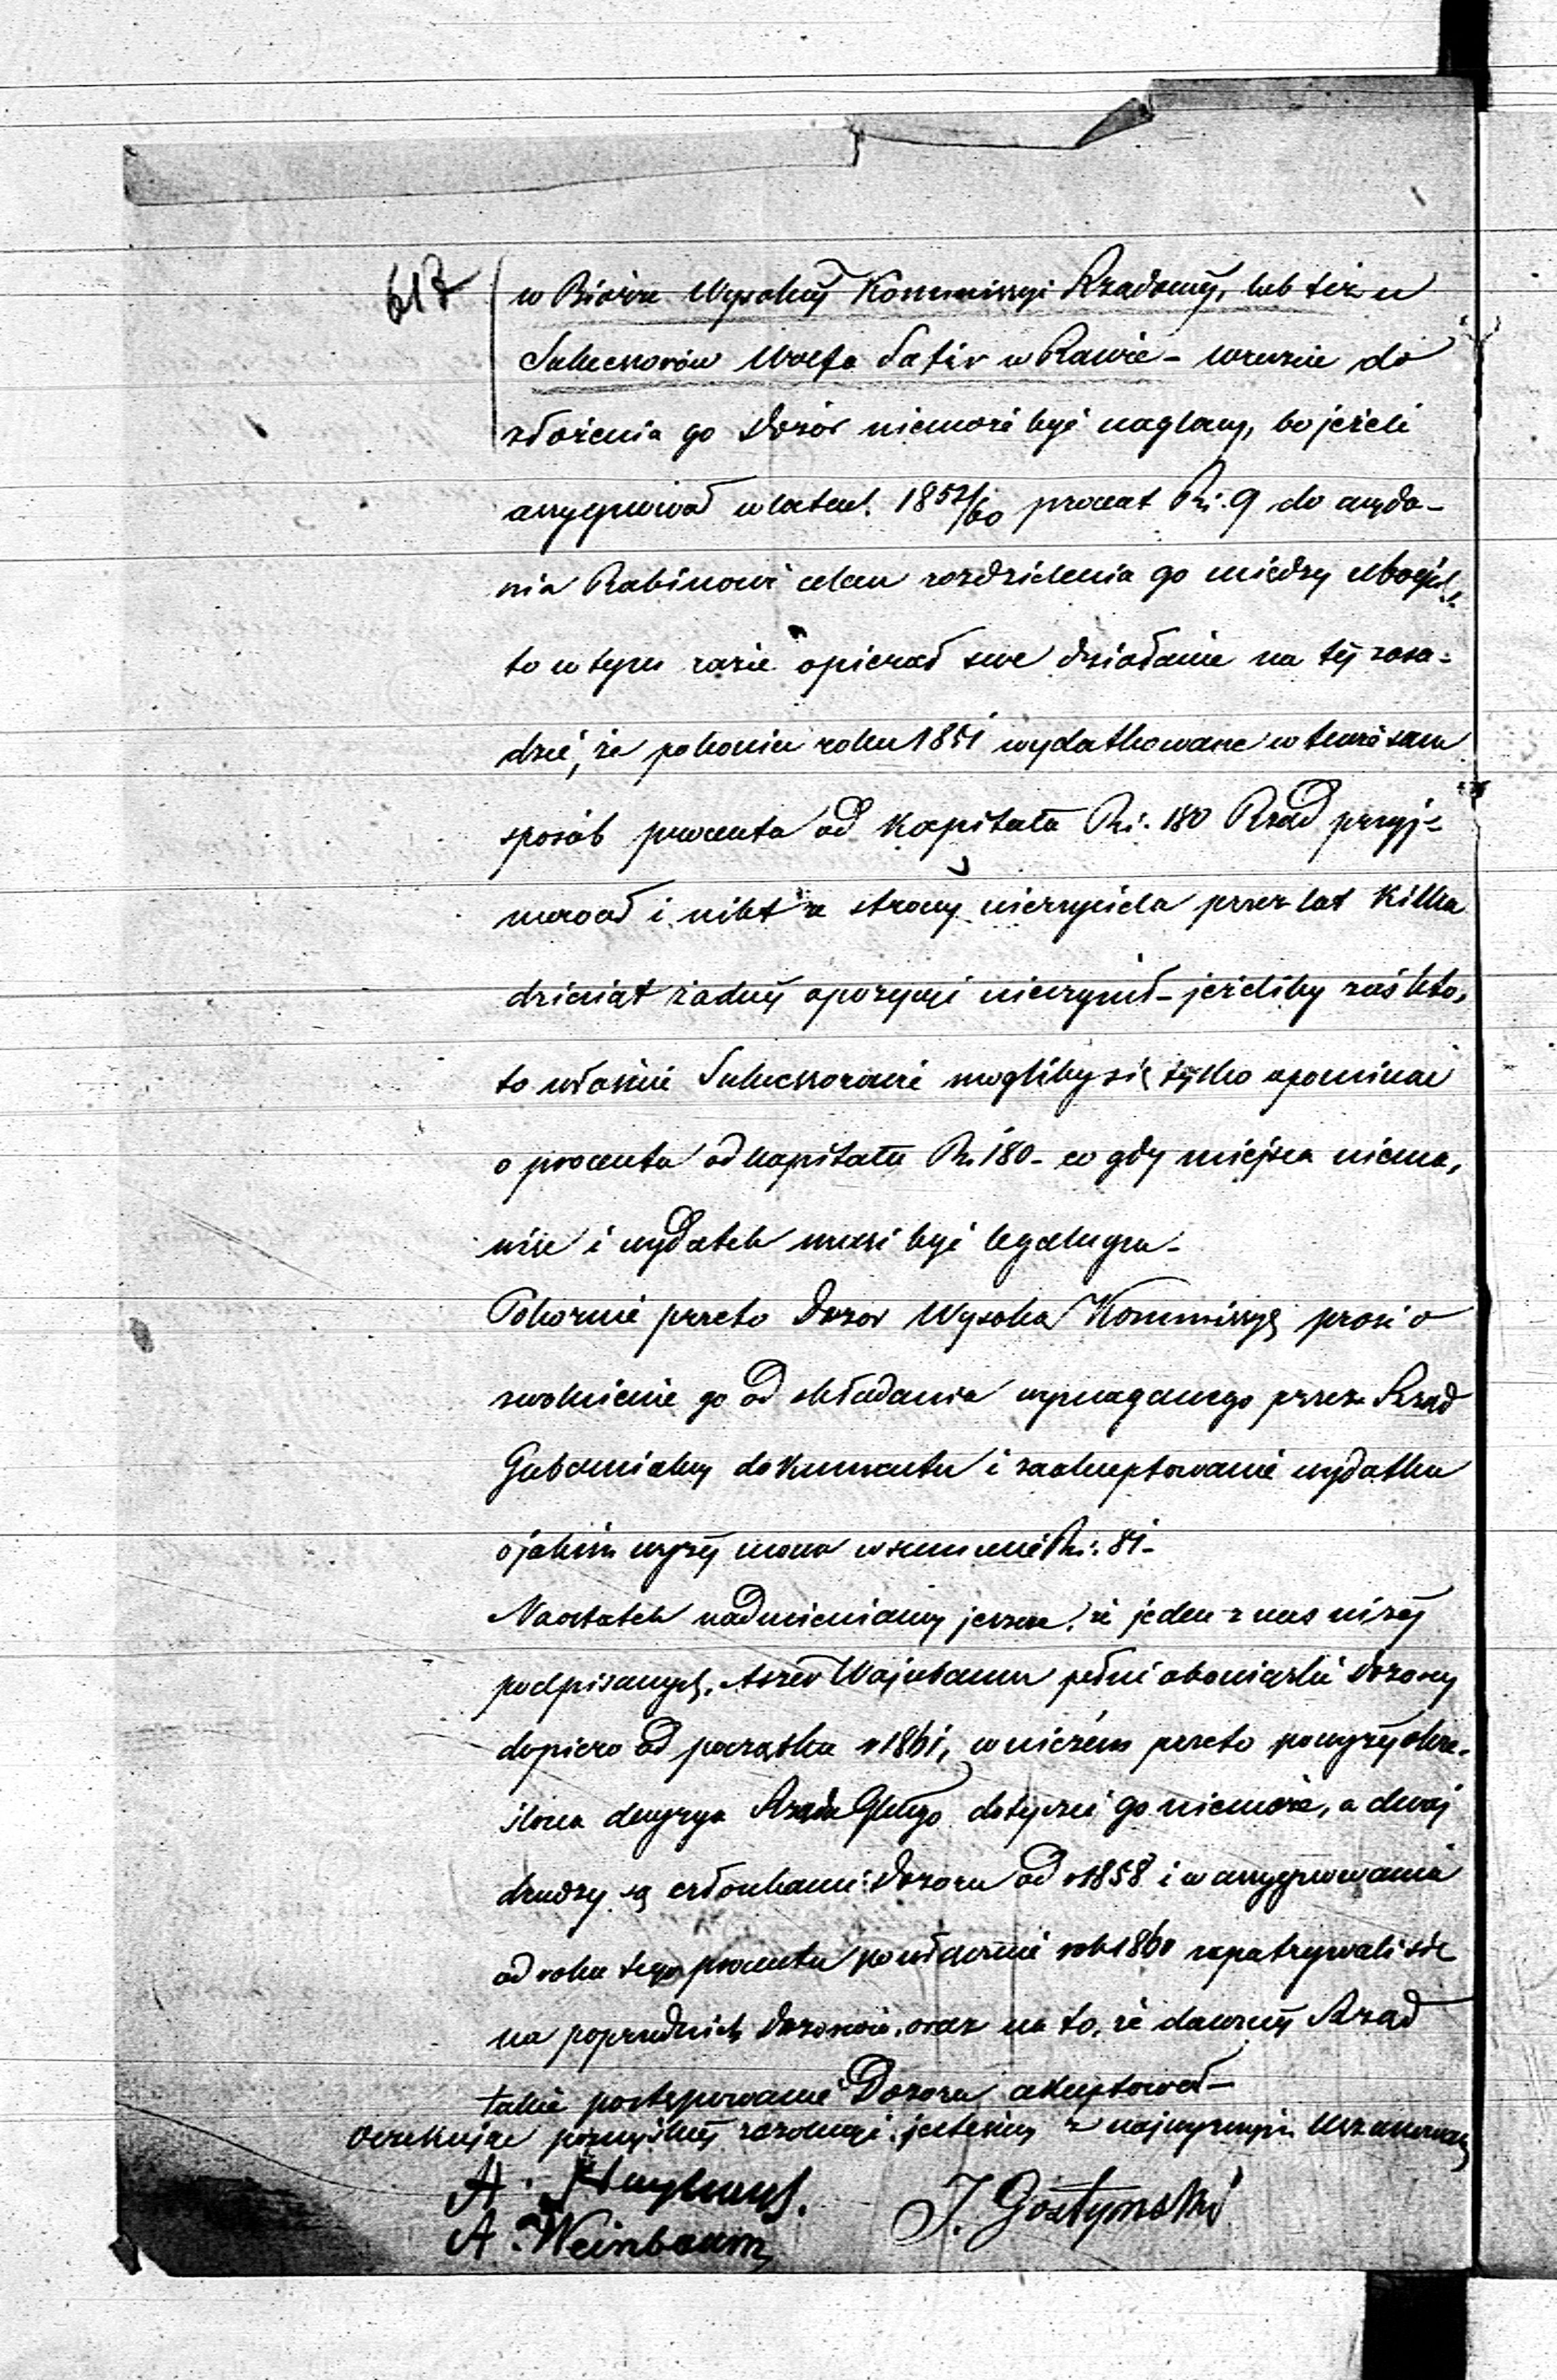 617
w Biórze Wysokiéj Kommissyi Rządowéj, lub też u
Sukcessorów Wolfa Łatér w Rawie – wreszcie do
złożenia go Dozór niemoże być naglany, bo jeżeli
assygnował w latach 1852/60 procent Rs. 9 do wyda-
nia Rabinowi celem rozdzielenia go między ubogich,
to w tym razie opierał swe działanie na téj zasa-
dzie, że po koniec roku 1851 wydatkowane w tenże sam
sposób procenta od Kapitału Rs. 180 Rząd przyj-
mował i nikt ze strony wierzyciela przez lat Kilka
dziesiąt żadnéj opozycyi nieczynił – jeżeliby zaś kto,
to właśnie Sukcessorowie mogliby się tylko upominać
o procenta od kapitału Rs. 180 – co gdy miejsca niema,
więc i wydatek musi być legalnym –
Pokornie przeto Dozór Wysoką Kommissyę prosi o
zwolnienie go od składania wymaganego przez Rząd
Gubernialny dokumentu i zaakceptowanie wydatku
o jakim wyżéj mowa w summie Rs. 81 –
Naostatek nadmieniamy jeszcze, że jeden z nas niżéj
podpisanych, Wajnbaum pełni obowiązki Dozorcy
dopiero od początku r 1861, w niczém przeto powyżéj okre-
ślona decyzya Rządu Gblnego dotyczeć go niemoże, a dwaj
drudzy są członkami Dozoru od r 1858 i w assygnowaniu
od roku tego procentu po włącznie rok 1860 zapatrywali się
na poprzednich Dozorców, oraz na to, że dawniéj Rząd
takie postępowanie Dozoru akceptował –
Oczekując pomyślnéj rezolucyi, jesteśmy z najwyższym Uszanowaniem
A.
J. Gostynski
A. Weinbaum